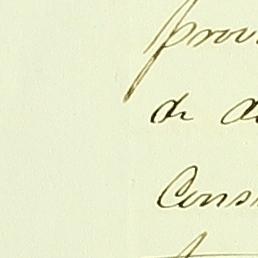 prov
de d
Cons